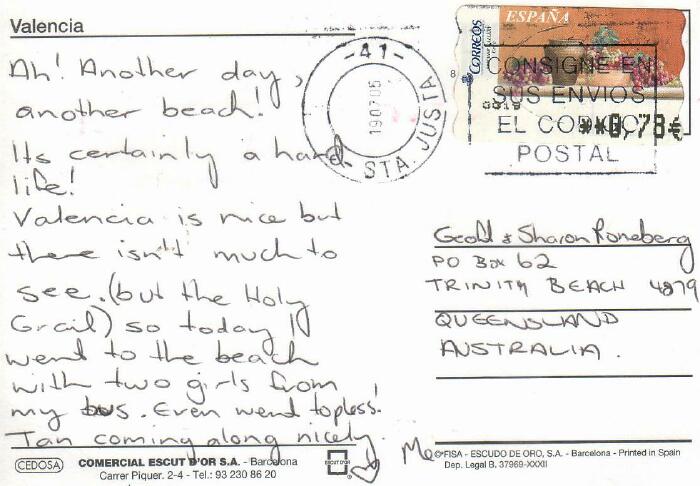 Valencia
Ah! Another day,
another beach!
Its certainly a hard
life!
Valencia is nice but
there isn't much to
see. (but the Holy
Grail) so today I
went to the beach
with two girls from
my bus. Even went topless!
Tan coming along nicely.
Me
CEDOSA
COMERCIAL ESCUT D'OR S.A. - Barcelona
Carrer Piquer. 2-4 - Tel.: 93 230 86 20
ESCUT D'OR
-41-
19 07 05
STA. JUSTA
CORREOS
ESPAÑA
CONSIGNE EN
SUS ENVIOS
EL CODIGO
POSTAL
**0,78€
& Sharon Roneberg
PO Box 62
TRINITY BEACH 4879
QUEENSLAND
AUSTRALIA.
©FISA - ESCUDO DE ORO, S.A. - Barcelona - Printed in Spain
Dep. Legal B. 37969-XXXII